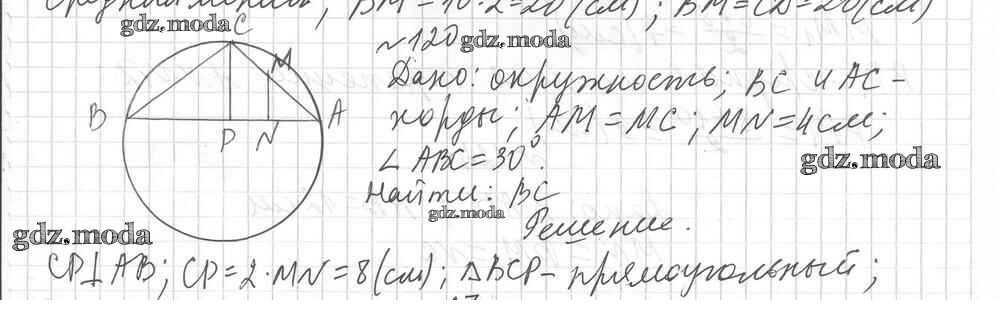 средняя BM = 10 · 2 = 20 (см); BM = CD = 20 (см)
gdz.moda
C
№ 120 gdz.moda
M
Дано: окружность; BC и AC -
B A
хорды; AM = MC; MN = 4 см;
P N
∠ ABC = 30°.
gdz.moda
Найти: BC
gdz.moda
Решение.
gdz.moda
CP⊥AB; CP = 2 · MN = 8 (см); △BCP - прямоугольный;